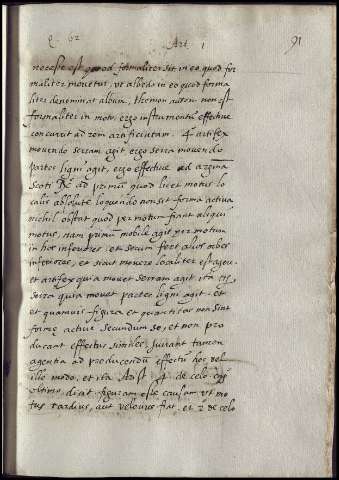 q. 62 Art. 1 91
necesse est quod formaliter sit in eo quod for
maliter movetur, ut albedo in eo quod forma
liter denominat album, tamen non est
formaliter in motu, ergo instrumentum effective
concurrit ad rem artificiatam. artifex
movendo serram agit ergo serra movendo
partes ligni agit, ergo effective ad
Scoti ad primum quod licet motus lo
calis absolute loquendo non sit forma activa
nihil obstat quod per motum fiant aliqui
motus, nam primum mobile agit per motum
in hoc inferiores, et secum fert alios orbes
inferiores, et sicut movere localiter est agere
et artifex quia movet serram agit ita
serra quia movet partes ligni agit. et
et quamvis figura et quantitas non sint
forme active secundum se, et non pro
ducant effectus similes, iuvant tamen
agentia ad producendum effectum hoc vel
illo modo, et ita de celo
ultimo, dicit figuram esse causam ut mo
tus tardius, aut velocius fiat, et 2º de celo